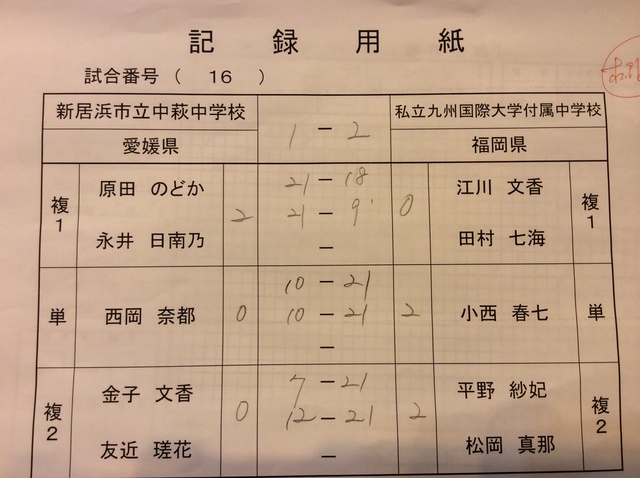 記録用紙
試合番号（ 16 ）
新居浜市立中萩中学校 1 − 2 私立九州国際大学付属中学校
愛媛県 福岡県
複1 原田 のどか 2 21 − 18 0 江川 文香 複1
21 − 9
永井 日南乃 − 田村 七海
単 西岡 奈都 0 10 − 21 2 小西 春七 単
10 − 21
−
複2 金子 文香 0 7 − 21 2 平野 紗妃 複2
12 − 21
友近 瑳花 − 松岡 真那